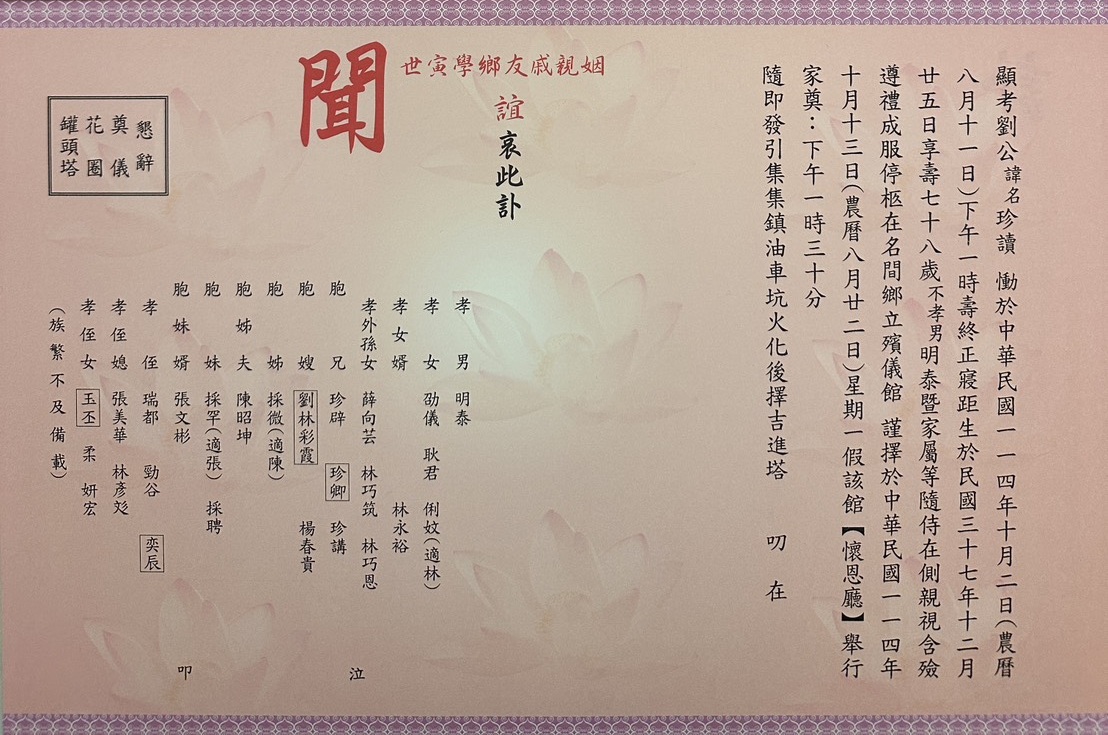 顯考劉公諱名珍讀 慟於中華民國一一四年十月二日(農曆
八月十一日)下午一時壽終正寢距生於民國三十七年十二月
廿五日享壽七十八歲不孝男明泰暨家屬等隨侍在側親視含殮
遵禮成服停柩在名間鄉立殯儀館 謹擇於中華民國一一四年
十月十三日(農曆八月廿二日)星期一假該館【懷恩廳】舉行
家奠：下午一時三十分
隨即發引集集鎮油車坑火化後擇吉進塔 叨 在
姻親戚友鄉學寅世
誼哀此訃
聞
孝男 明泰
孝女 劭儀 耿君 俐妏(適林)
孝女婿 林永裕
孝外孫女 薛向芸 林巧筑 林巧恩
胞兄 珍辟 珍卿 珍講
泣
胞嫂 劉林彩霞 楊春貴
胞姊 採微(適陳)
胞姊夫 陳昭坤
胞妹 採罕(適張) 採聘
胞妹婿 張文彬
叩
孝侄 瑞都 勁谷 奕辰
孝侄媳 張美華 林彥彣
孝侄女 玉丕 柔 妍宏
(族繁不及備載)
懇辭
奠儀
花圈
罐頭塔